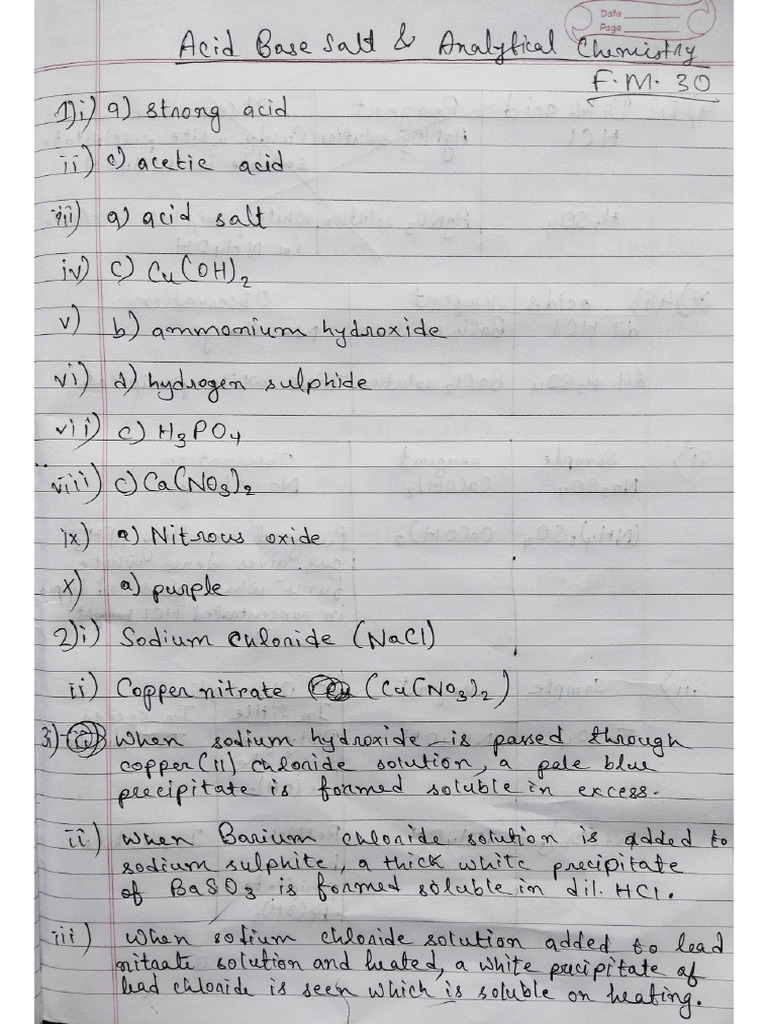 Date
Page
Acid Base Salt & Analytical Chemistry
F.M. 30
1)i) a) strong acid
ii) c) acetic acid
iii) a) acid salt
iv) c) Cu(OH)2
v) b) ammonium hydroxide
vi) d) hydrogen sulphide
vii) c) H3PO4
viii) c) Ca(NO3)2
ix) a) Nitrous oxide
x) a) purple
2)i) Sodium chloride (NaCl)
ii) Copper nitrate (Cu(NO3)2)
3)i) When sodium hydroxide is passed through
copper(II) chloride solution, a pale blue
precipitate is formed soluble in excess.
ii) When Barium chloride solution is added to
sodium sulphite, a thick white precipitate
of BaSO3 is formed soluble in dil. HCl.
iii) When sodium chloride solution added to lead
nitrate solution and heated, a white precipitate of
lead chloride is seen which is soluble on heating.